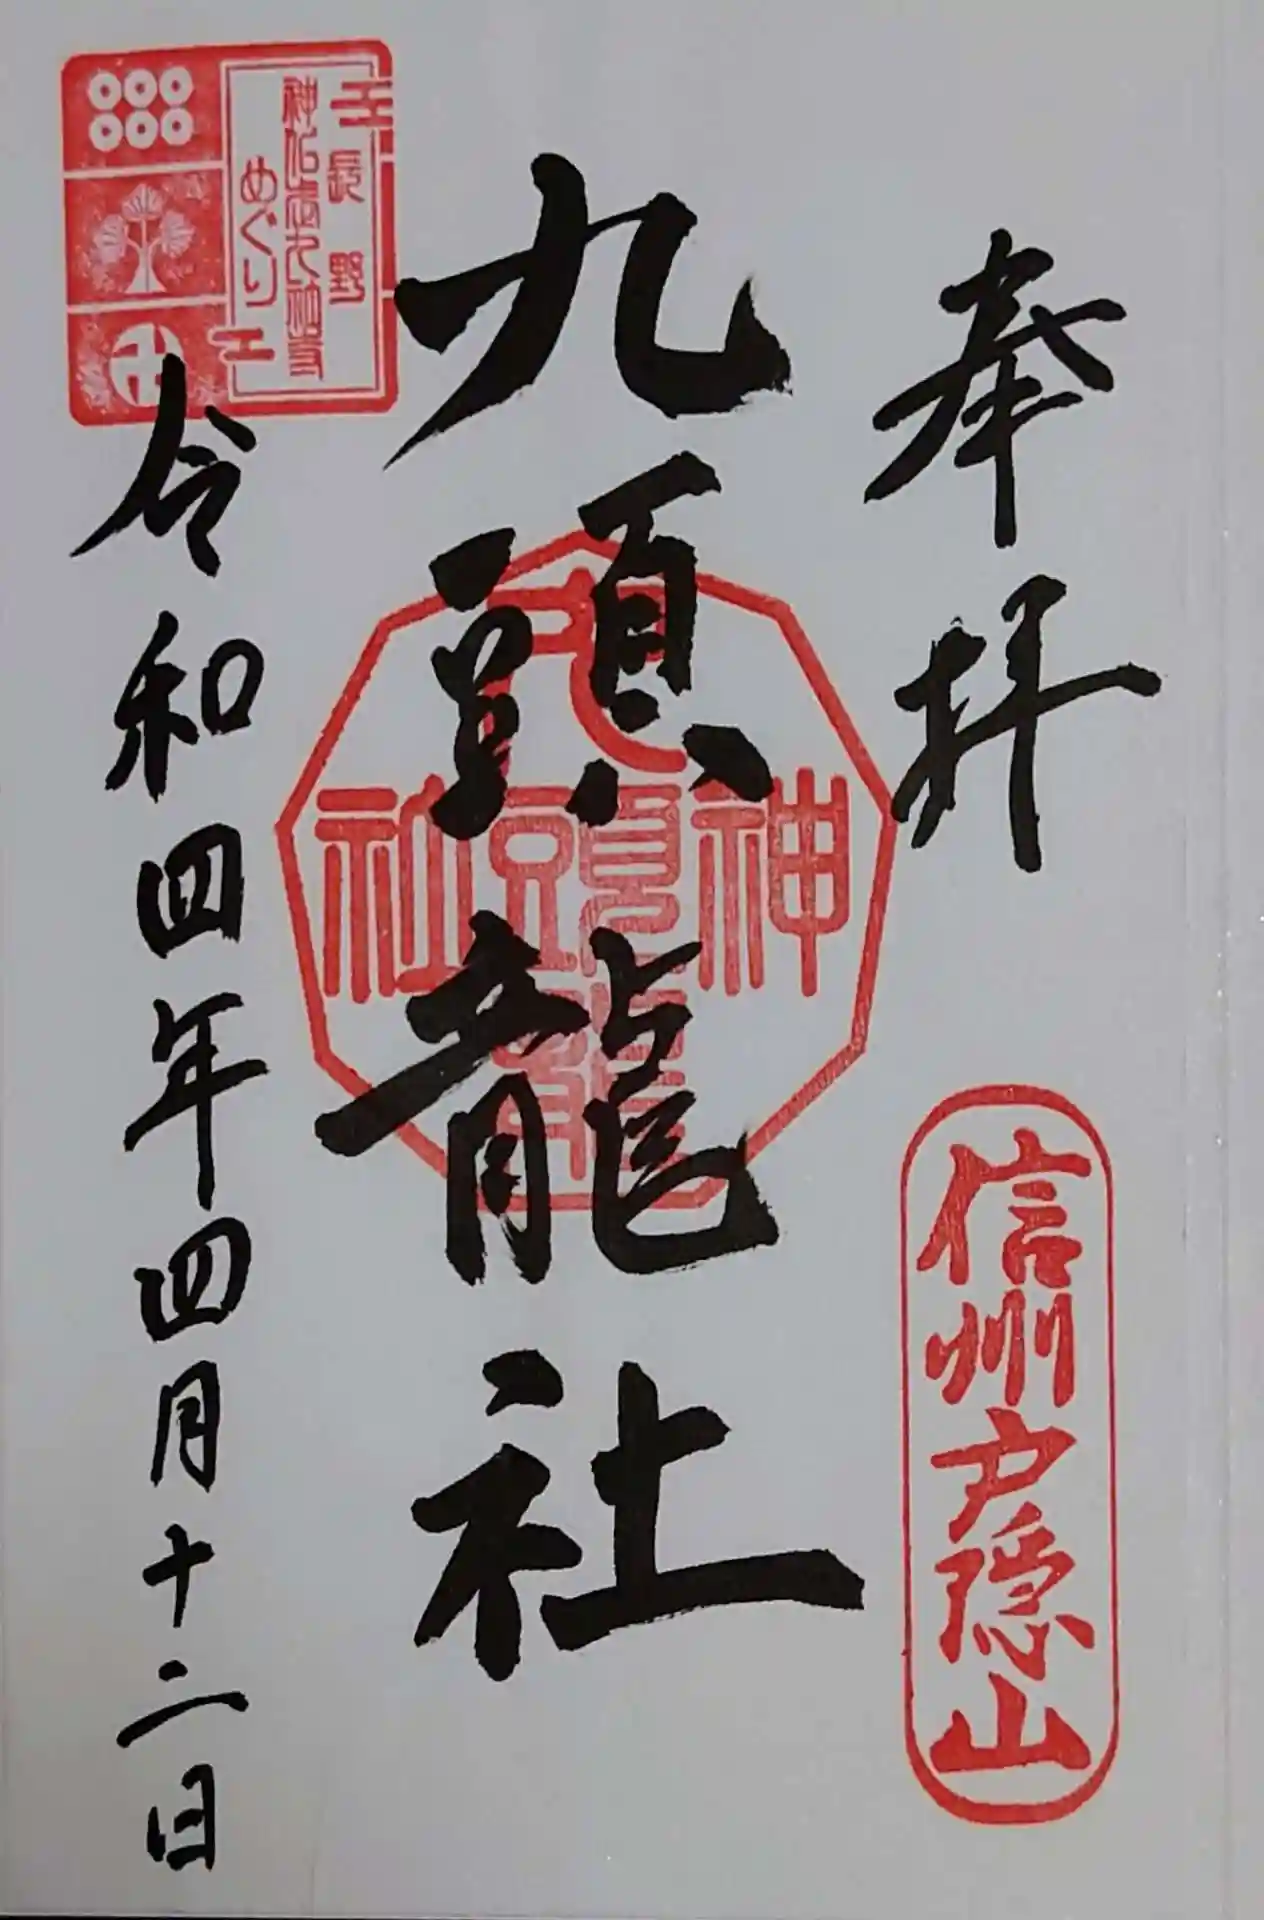 奉拝
信州戸隠山
九頭龍社
九頭龍神社
令和四年四月十二日
長野
神仏廿九社寺
めぐり